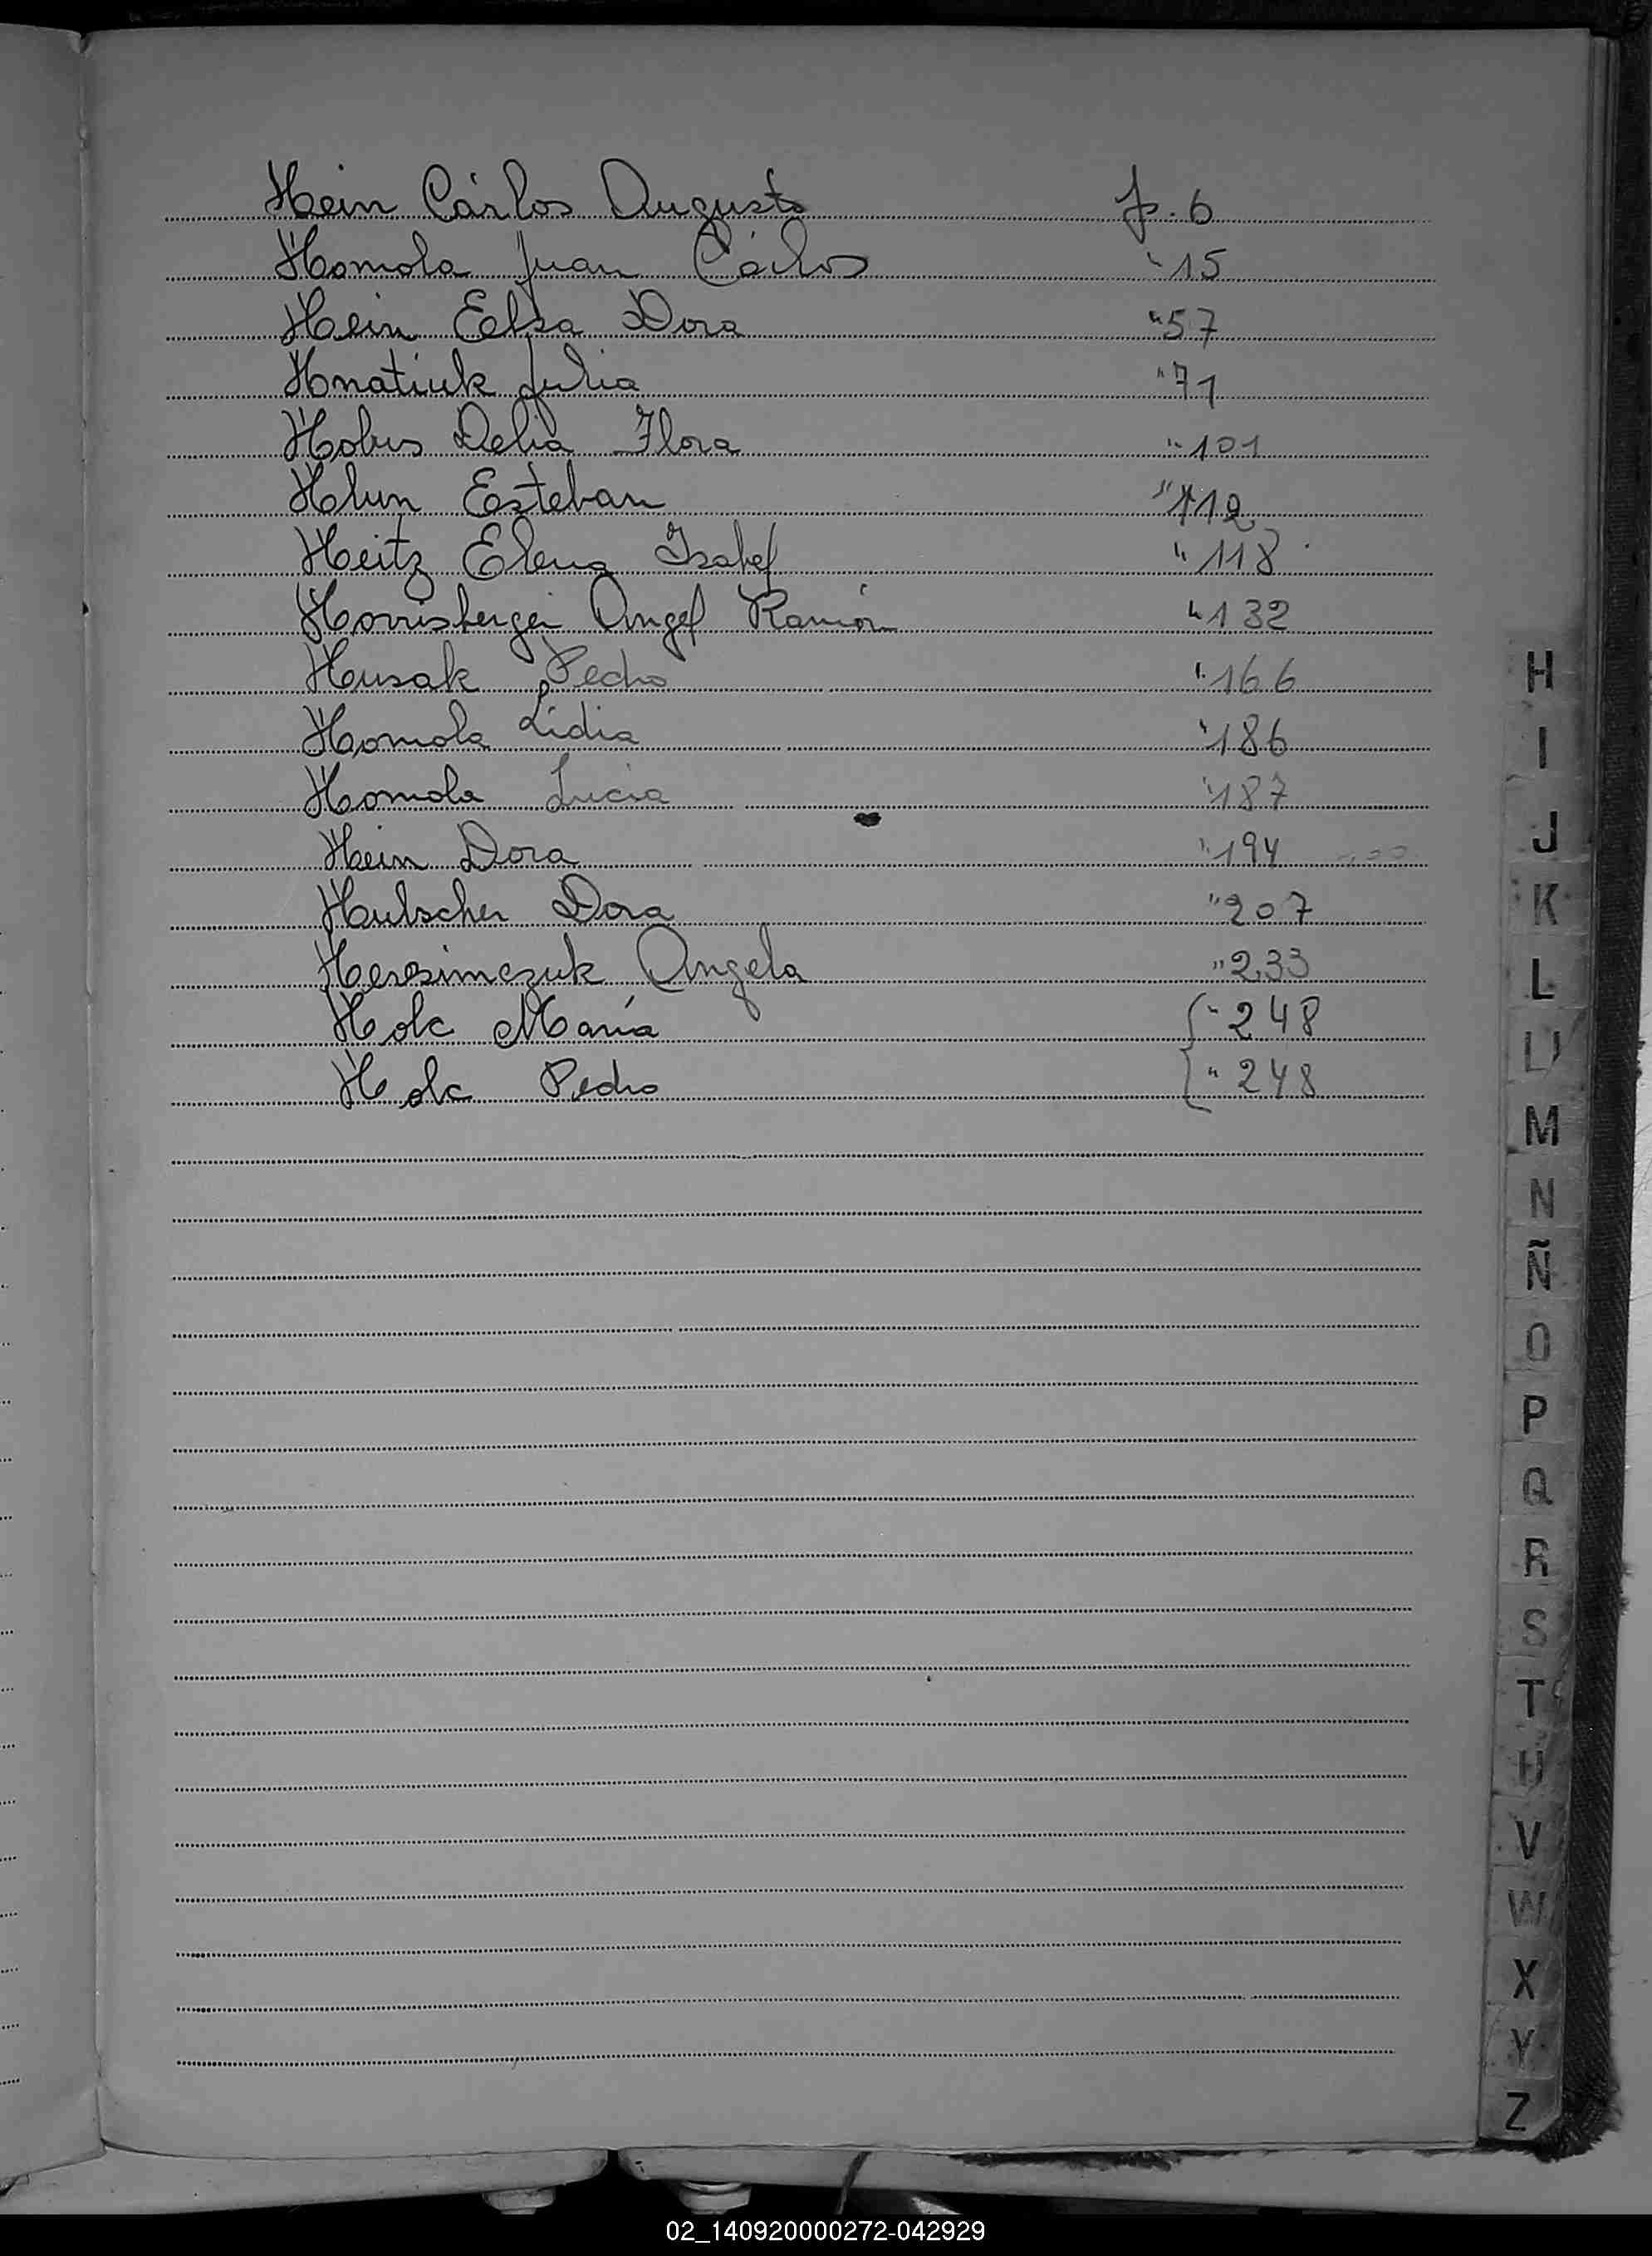 Hein Cárlos Augusto f. 6
Homola Juan Cárlos " 15
Hein Elsa Dora " 57
Hnatiuk Julia " 71
Hobus Delia Flora " 101
Hlun Esteban " 112
Heitz Elena Isabel " 118
Horrisberger Angel Ramón " 132
Husak Pedro " 166
Homola Lidia " 186
Homola Lucia " 187
Hein Dora " 194
Hulscher Dora " 207
Herasimczuk Angela " 233
Holc María " 248
Holc Pedro " 248
H
I
J
K
L
LL
M
N
Ñ
O
P
Q
R
S
T
U
V
W
X
Y
Z
02_140920000272-042929